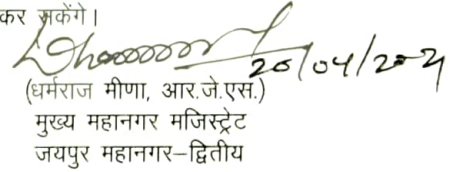 कर सकेंगे।
20/04/2021
(धर्मराज मीणा, आर.जे.एस.)
मुख्य महानगर मजिस्ट्रेट
जयपुर महानगर–द्वितीय